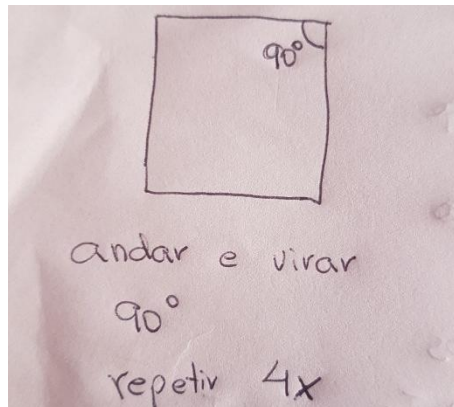 90°
andar e virar
90°
repetir 4x